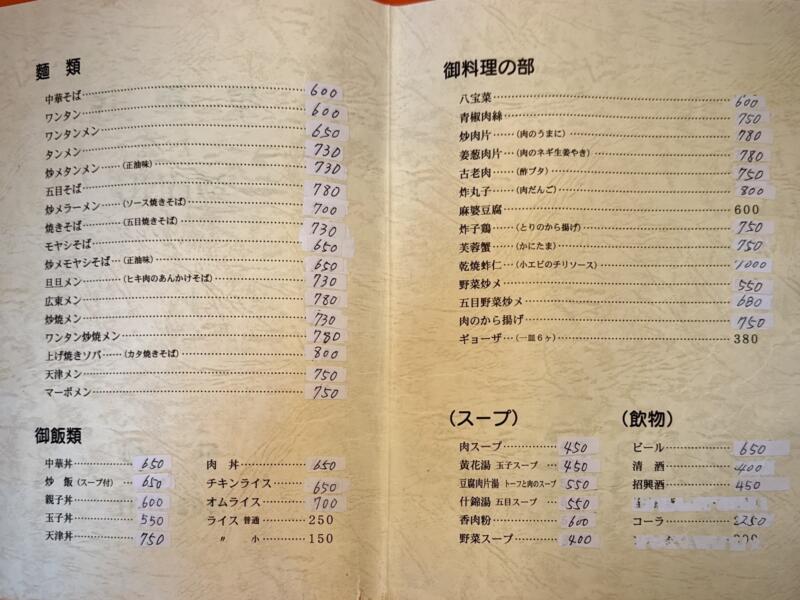 麺 類
中華そば 600
ワンタン 600
ワンタンメン 650
タンメン 730
炒メタンメン (正油味) 730
五目そば 780
炒メラーメン (ソース焼きそば) 700
焼きそば (五目焼きそば) 730
モヤシそば 650
炒メモヤシそば (正油味) 650
旦旦メン (ヒキ肉のあんかけそば) 730
広東メン 780
炒焼メン 730
ワンタン炒焼メン 780
上げ焼きソバ (カタ焼きそば) 800
天津メン 750
マーボメン 750
御飯類
中華丼 650
炒 飯 (スープ付) 650
親子丼 600
玉子丼 550
天津丼 750
肉 丼 650
チキンライス 650
オムライス 700
ライス 普通 250
〃 小 150
御料理の部
八宝菜 600
青椒肉絲 750
炒肉片 (肉のうまに) 780
姜葱肉片 (肉のネギ生姜やき) 780
古老肉 (酢ブタ) 750
炸丸子 (肉だんご) 800
麻婆豆腐 600
炸子鶏 (とりのから揚げ) 750
芙蓉蟹 (かにたま) 750
乾焼蚱仁 (小エビのチリソース) 1000
野菜炒メ 550
五目野菜炒メ 680
肉のから揚げ 750
ギョーザ (一皿6ヶ) 380
(スープ)
肉スープ 450
黄花湯 玉子スープ 450
豆腐肉片湯 トーフと肉のスープ 550
什錦湯 五目スープ 550
香肉粉 600
野菜スープ 400
(飲物)
ビール 650
清 酒 400
招興酒 450
コーラ 250